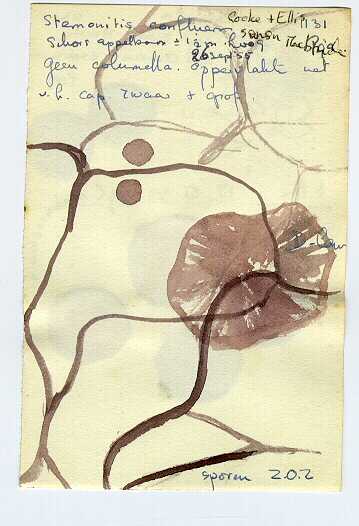 Stemonitis confluens Cooke + Ellis 131
sensu
Schors appelboom ± 1½ m. hoog
26 sept 55
geen columella. Oppervlakte net
v.h. cap. zwaar + grof.
sporen 202